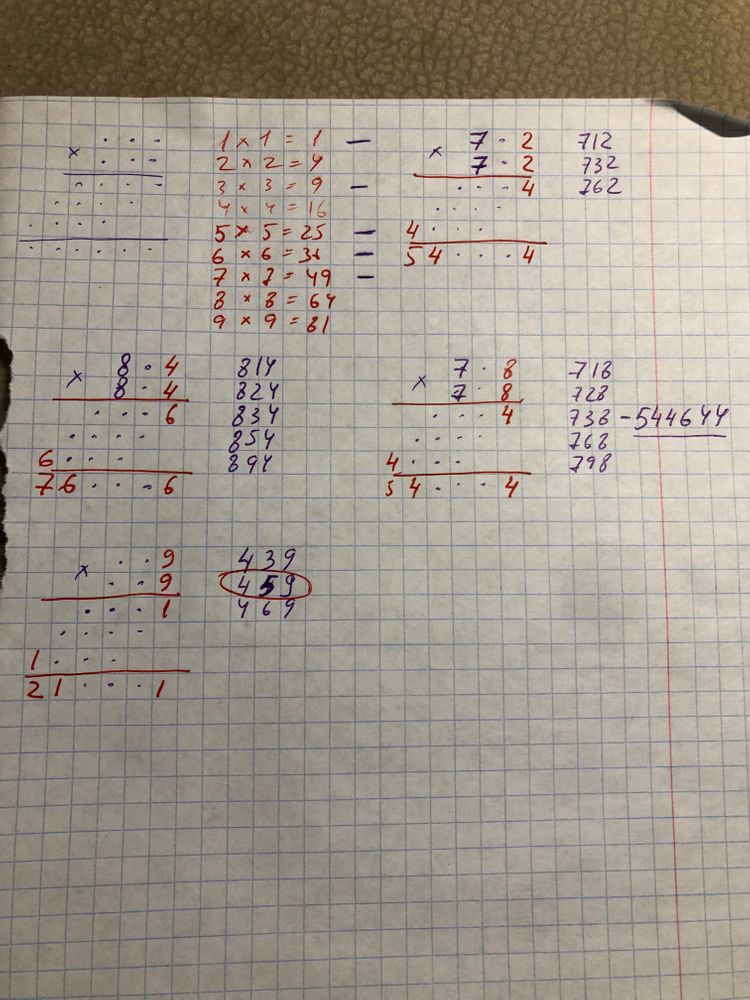 . . .
× . . .
. . . .
. . . .
. . . .
. . . . . .
1 × 1 = 1 —
2 × 2 = 4
3 × 3 = 9 —
4 × 4 = 16
5 × 5 = 25 —
6 × 6 = 36 —
7 × 7 = 49 —
8 × 8 = 64
9 × 9 = 81
7 . 2
× 7 . 2
. . . 4
. . . .
4 . . .
5 4 . . . 4
712
732
762
8 . 4
× 8 . 4
. . . 6
. . . .
6 . . .
7 6 . . . 6
814
824
834
854
894
7 . 8
× 7 . 8
. . . 4
. . . .
4 . . .
5 4 . . . 4
718
728
738 – 544644
768
798
. . 9
× . . 9
. . . 1
. . . .
1 . . .
2 1 . . . 1
439
459
469